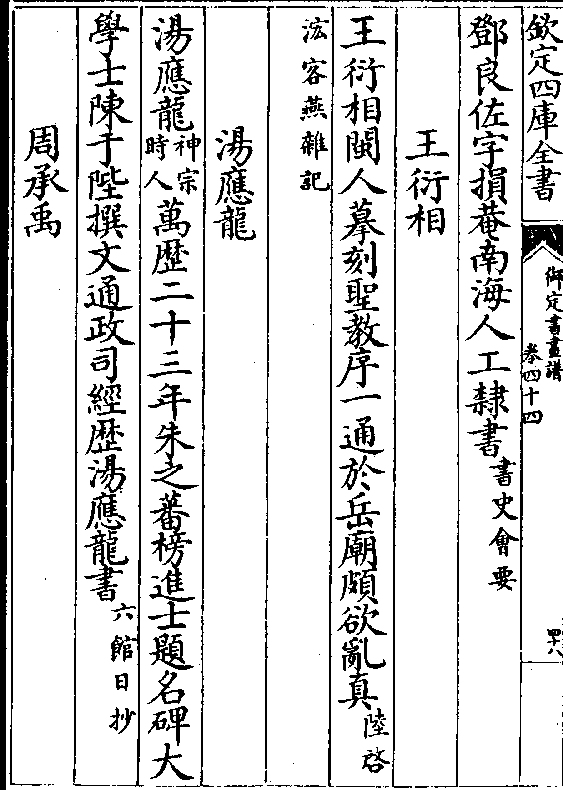 欽定四庫全書
御定書畫譜
卷四十四
四十八
鄧良佐字損菴南海人工隸書書史會要
王衍相
王衍相閩人摹刻聖教序一通於岳廟頗欲亂真陸啓
浤客燕雜記
湯應龍
湯應龍神宗時人萬歴二十三年朱之蕃榜進士題名碑大
學士陳于陛撰文通政司經歴湯應龍書六館日抄
周承禹